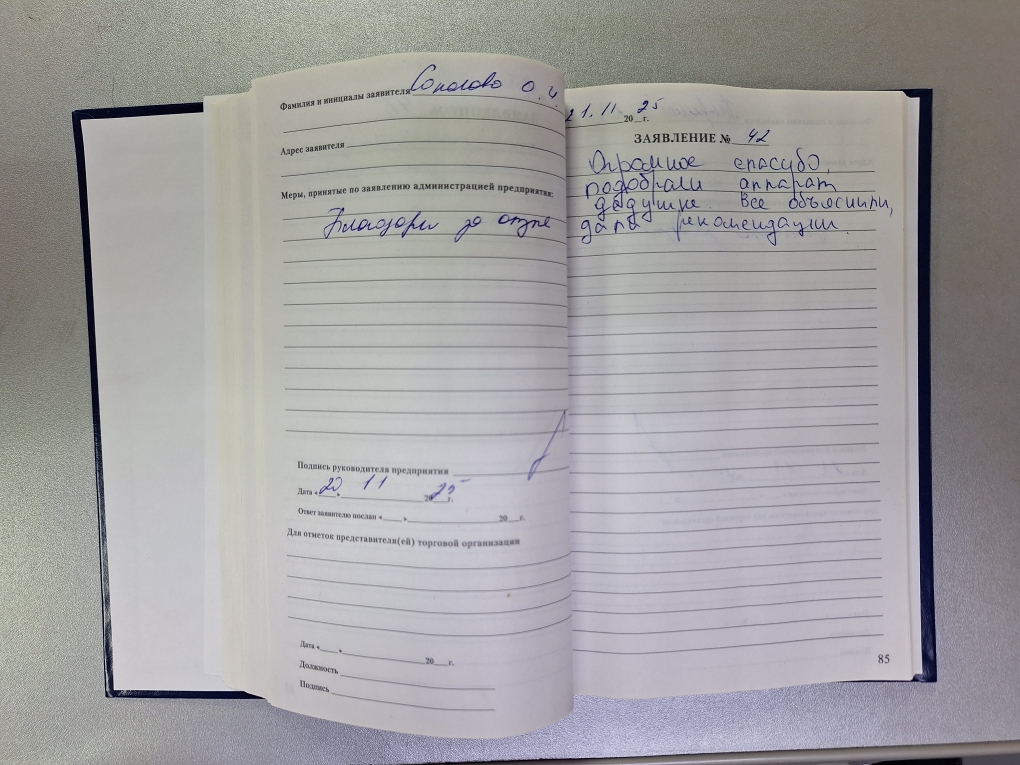 Фамилия и инициалы заявителя Соколова О.И.
Адрес заявителя
Меры, принятые по заявлению администрацией предприятия:
Благодарим за
Подпись руководителя предприятия
Дата «20» 11 2025 г.
Ответ заявителю послан «___» 20__г.
Для отметок представителя(ей) торговой организации
Дата «___» 20__г.
Должность
Подпись
21.11 2025 г.
ЗАЯВЛЕНИЕ № 42
Огромное спасибо,
подобрали аппарат
дедушке. Все объяснили,
дали рекомендации.
85